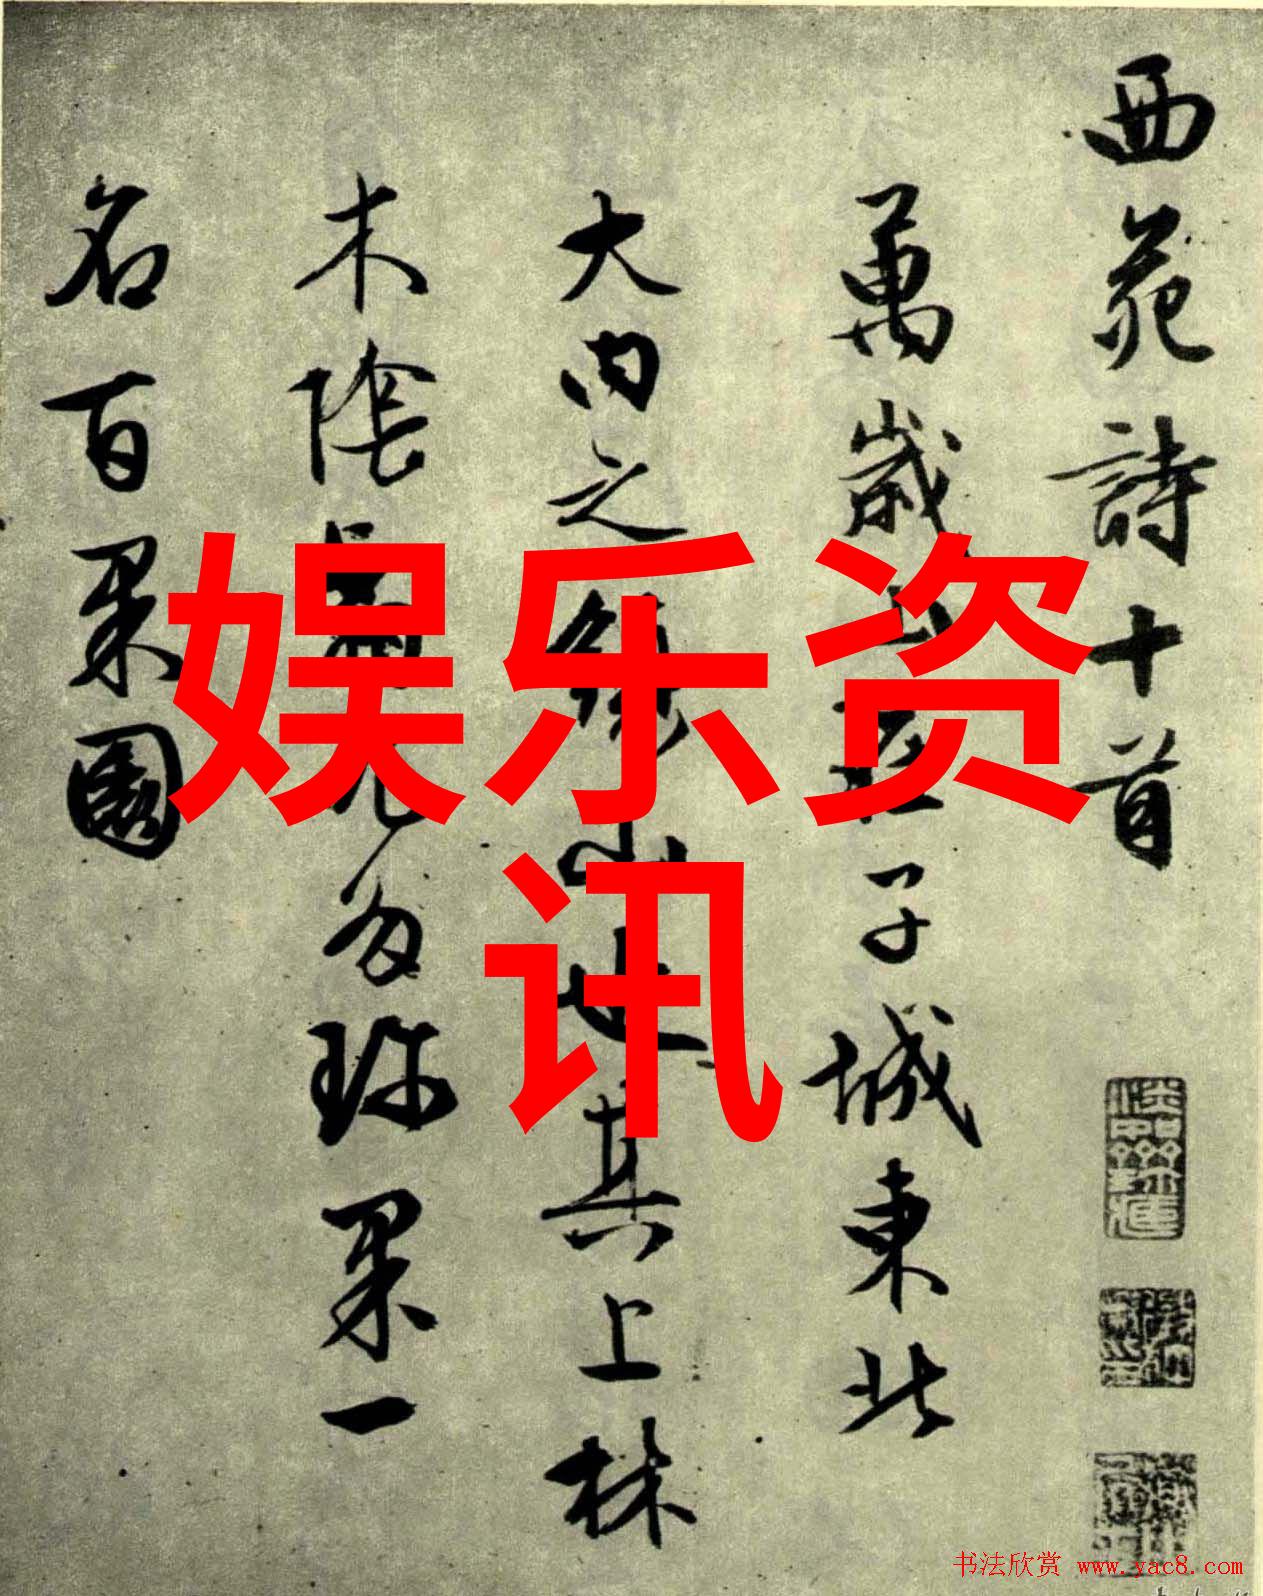 西苑詩十首
萬歲山在子城東北
大内之鎮山也其上林
木陰多珍果一
名百果園
娱乐资
讯
书法欣赏 www.yac8.com